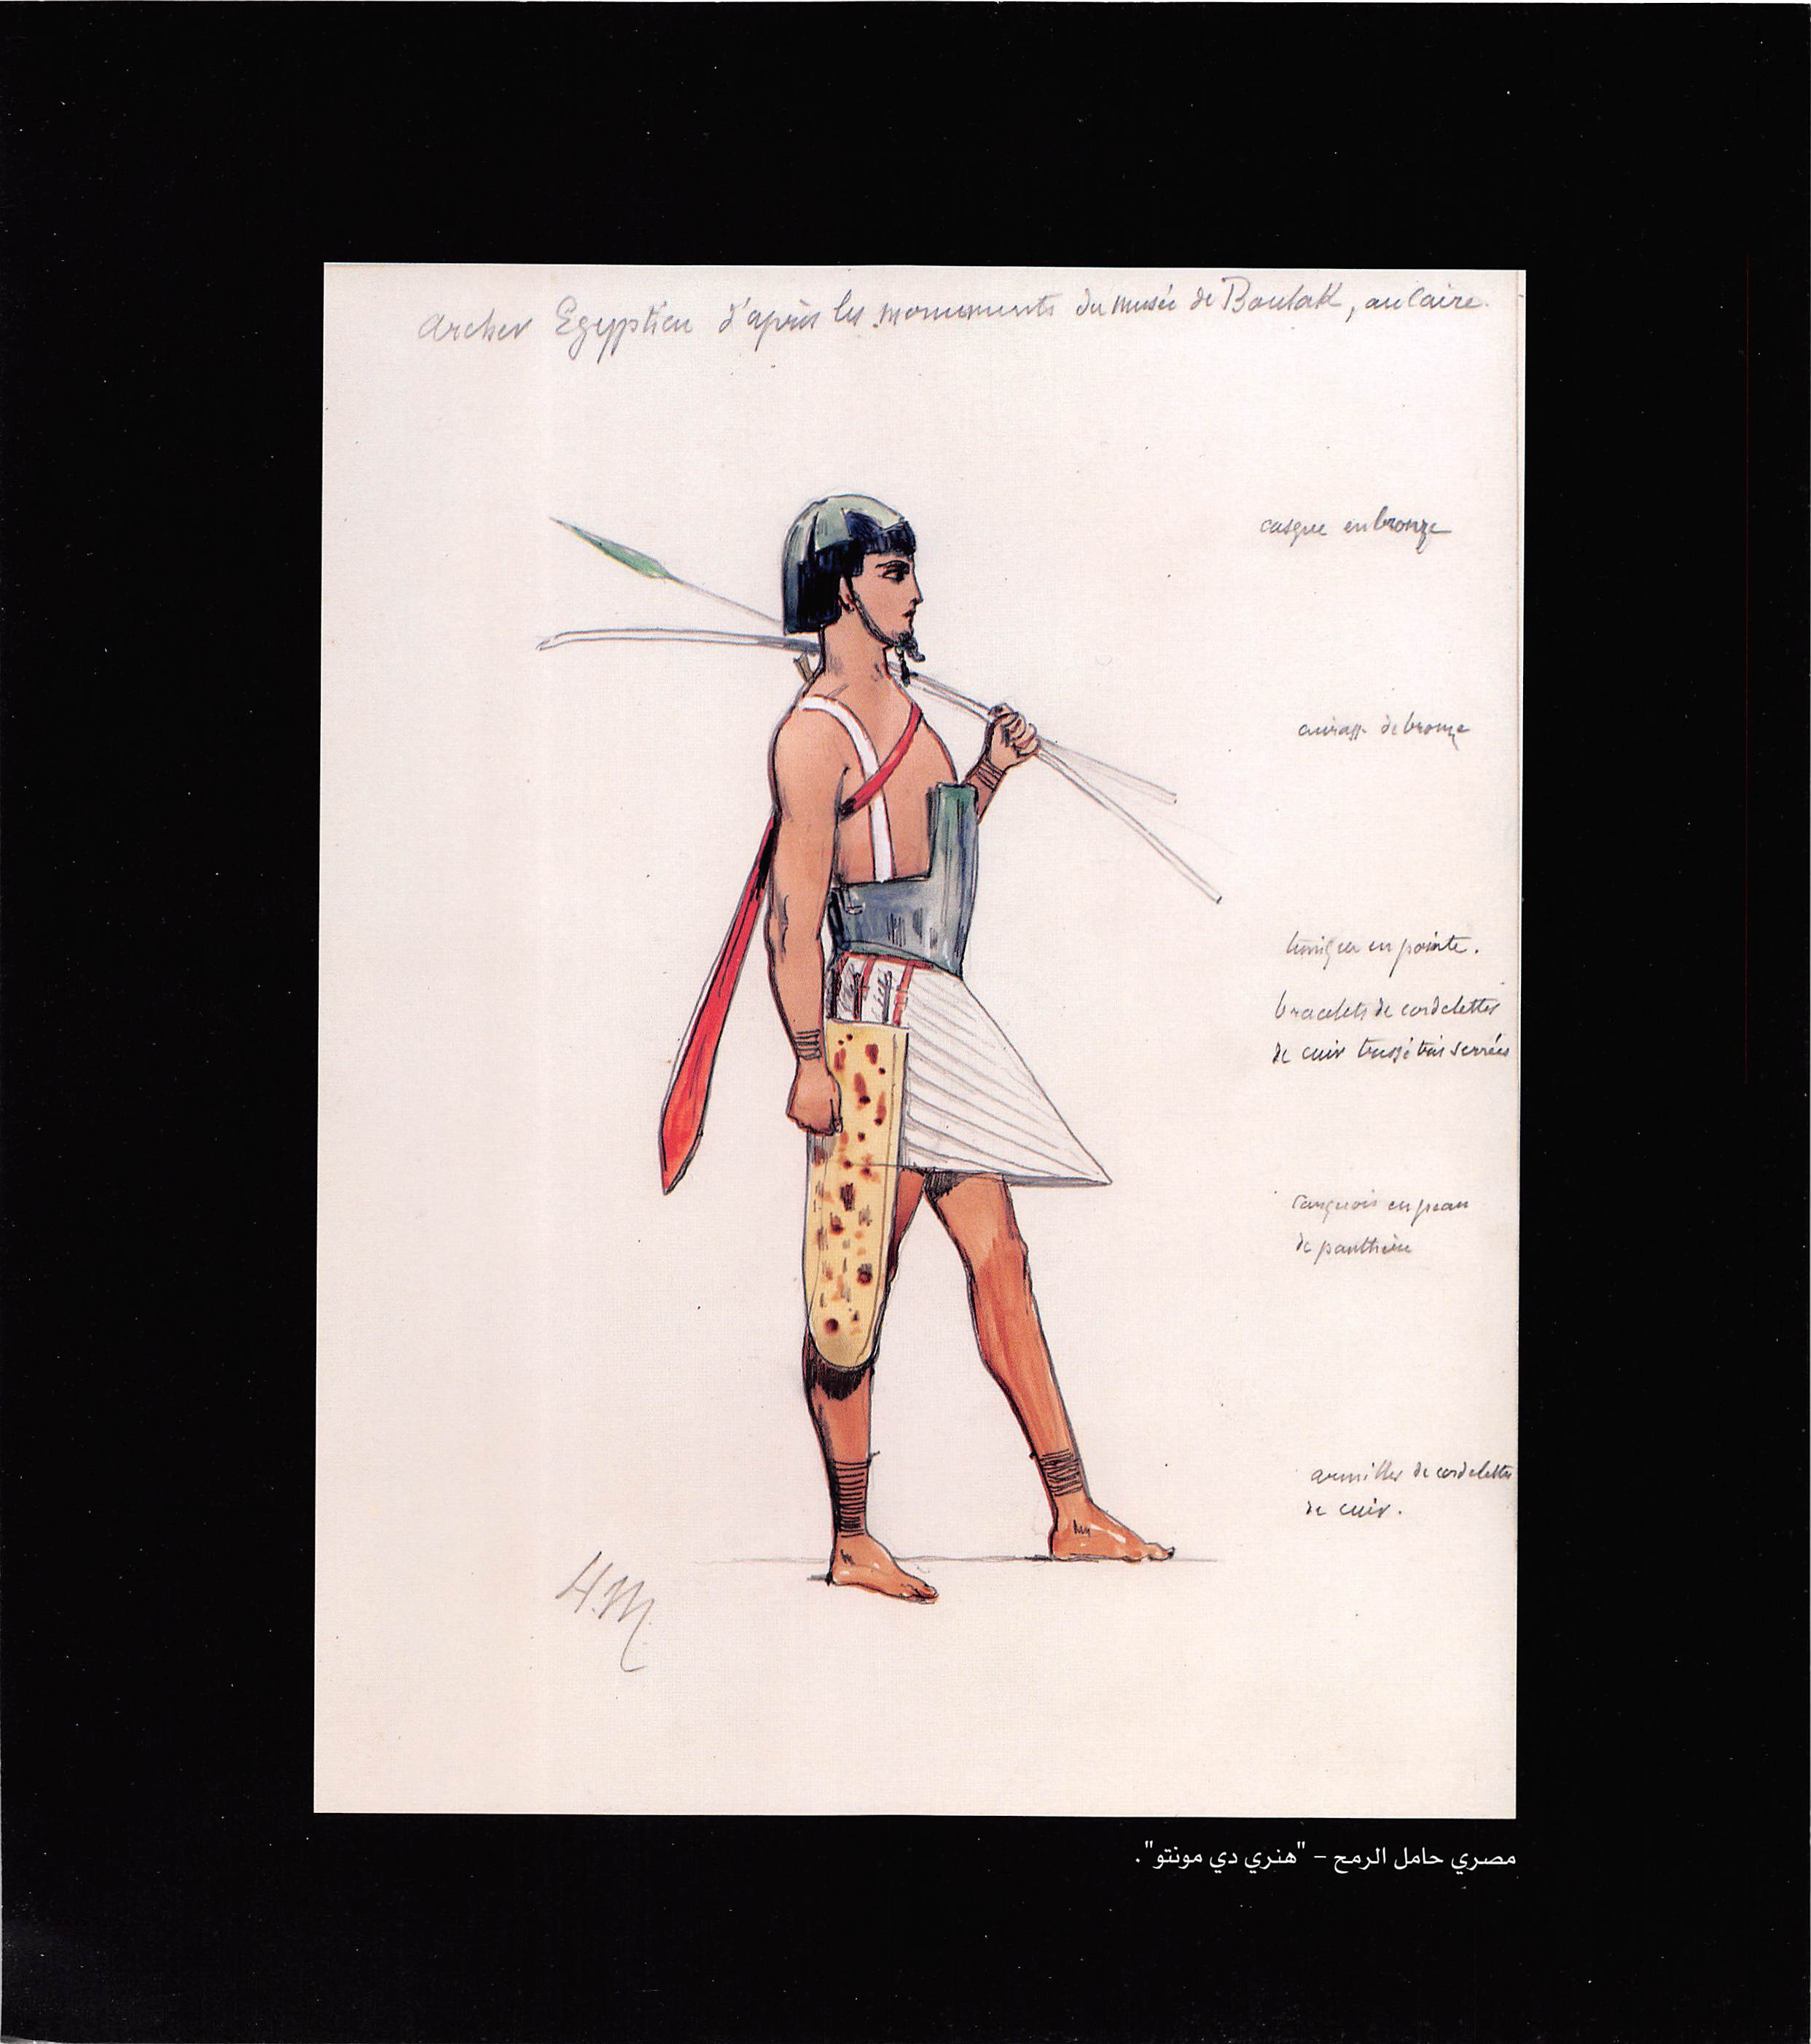 Archer Egyptien d'après les monuments du musée de Boulak, au Caire.
casque en bronze
cuirasse de bronze
tunique en pointe.
bracelets de cordelettes
de cuir tressé très serrées
carquois en peau
de panthère
armilles de cordelettes
de cuir.
H.M
مصري حامل الرمح – "هنري دي مونتو".